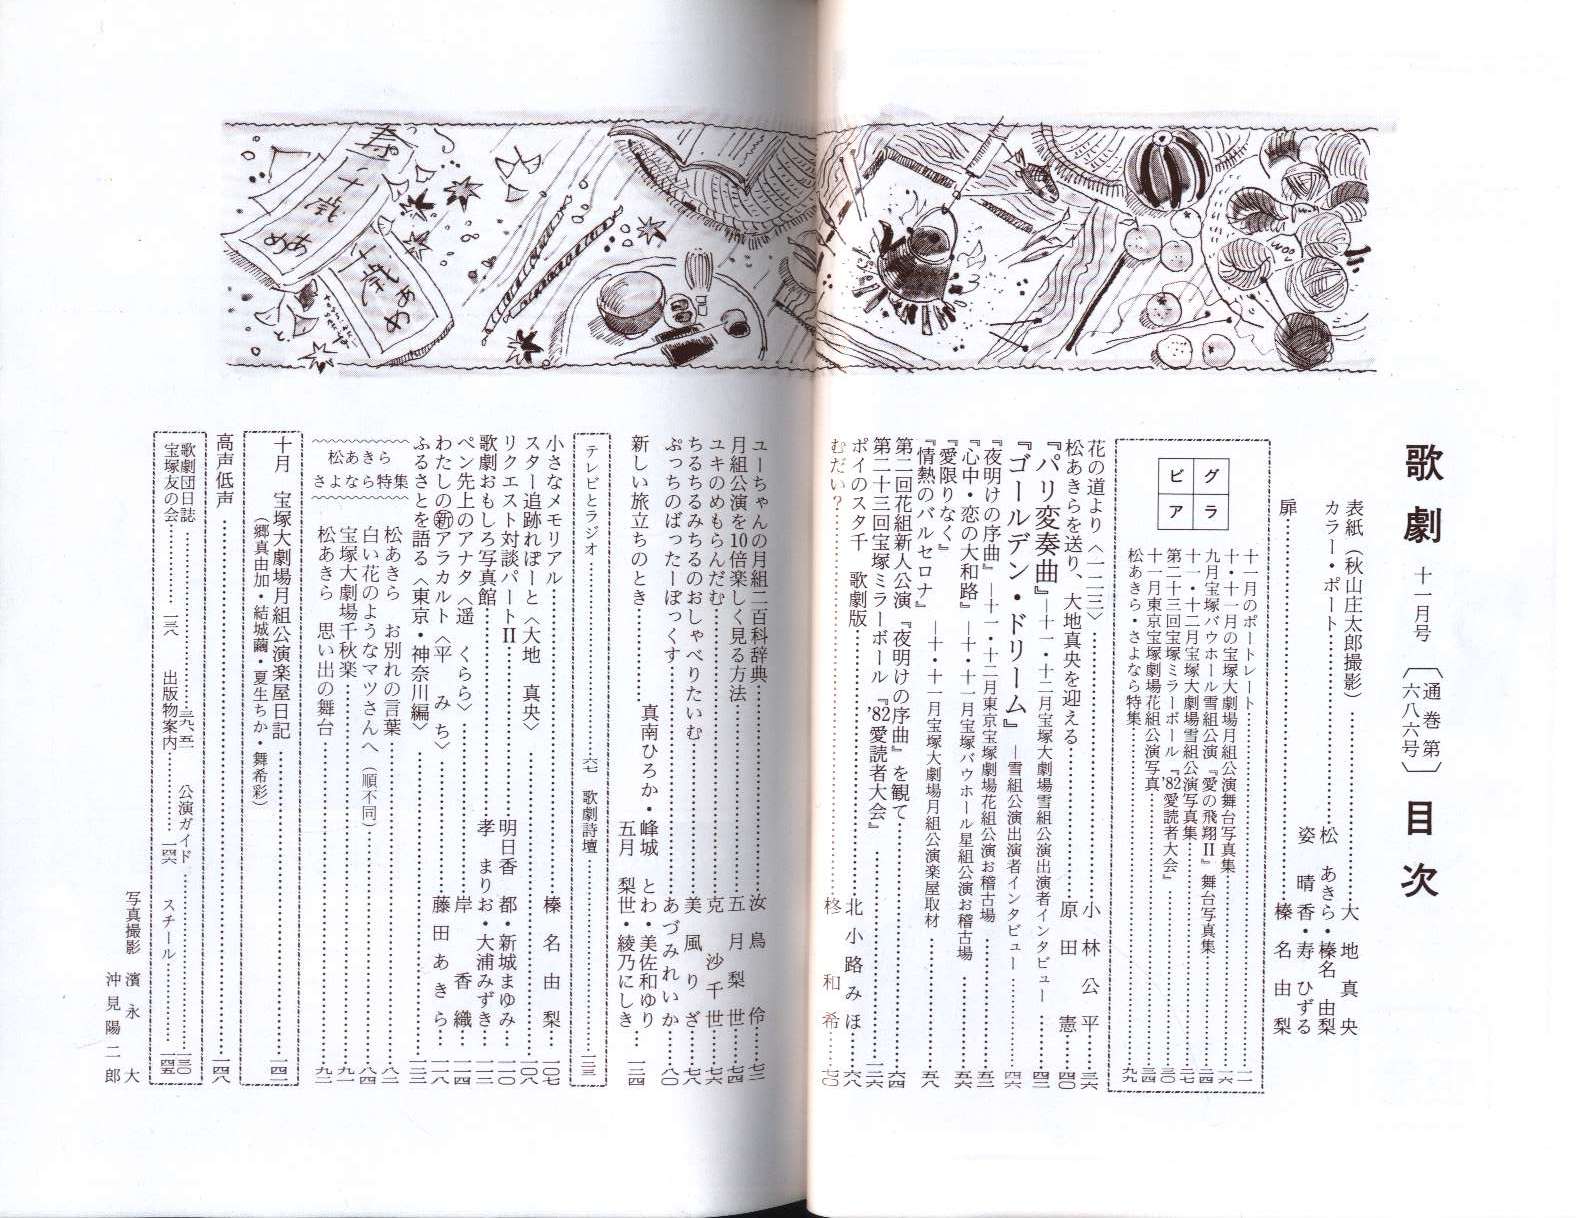 歌劇 十一月号 〔通巻第六八六号〕 目次
表紙（秋山庄太郎撮影）……大地真央
カラー・ポート……松あきら・榛名由梨
姿晴香・寿ひずる
扉……榛名由梨
グラビア
十一月のポートレート……一一
十・十一月の宝塚大劇場月組公演舞台写真集……一六
九月宝塚バウホール雪組公演『愛の飛翔Ⅱ』舞台写真集……二四
十一・十二月宝塚大劇場雪組公演写真集……二七
第二十三回宝塚ミラーボール『'82愛読者大会』……三〇
十一月東京宝塚劇場花組公演写真……三四
松あきら・さよなら特集……九九
花の道より〈一二三〉……小林公平……三六
松あきらを送り、大地真央を迎える……原田憲……四〇
『パリ変奏曲』―十一・十二月宝塚大劇場雪組公演出演者インタビュー……四二
『ゴールデン・ドリーム』―雪組公演出演者インタビュー……四六
『夜明けの序曲』―十一・十二月東京宝塚劇場花組公演お稽古場……五二
『心中・恋の大和路』―十・十一月宝塚バウホール星組公演お稽古場……五六
『愛限りなく』
『情熱のバルセロナ』―十・十一月宝塚大劇場月組公演楽屋取材……五八
第二回花組新人公演『夜明けの序曲』を観て……六四
第二十三回宝塚ミラーボール『'82愛読者大会』……一二六
ポイのスタ千 歌劇版……北小路みほ……六八
むだい?……柊和希……七〇
ユーちゃんの月組二百科辞典……汝鳥伶……七二
月組公演を10倍楽しく見る方法……五月梨世……七四
ユキのめもらんだむ……克沙千世……七六
ちるちるみちるのおしゃべりたいむ……美風りざ……七八
ぷっちのばったーぼっくす……あづみれいか……八〇
新しい旅立ちのとき……真南ひろか・峰城とわ・美佐和ゆり
五月梨世・綾乃にしき……一三四
テレビとラジオ……六七 歌劇詩壇……一三三
小さなメモリアル……榛名由梨……一〇七
スター追跡れぽーと〈大地真央〉……一〇八
リクエスト対談パートⅡ……明日香都・新城まゆみ……一一〇
歌劇おもしろ写真館……孝まりお・大浦みずき……一一三
ペン先上のアナタ〈遥くらら〉……岸香織……一一四
わたしの新アラカルト〈平みち〉……藤田あきら……一一八
ふるさとを語る〈東京・神奈川編〉……一二二
松あきら さよなら特集
松あきら お別れの言葉……八二
白い花のようなマツさんへ（順不同）……八四
宝塚大劇場千秋楽……九一
松あきら 思い出の舞台……九二
十月 宝塚大劇場月組公演楽屋日記……一四一
（郷真由加・結城繭・夏生ちか・舞希彩）
高声低声……一四八
歌劇団日誌……三九、五一 公演ガイド……一三〇
宝塚友の会……一三八 出版物案内……一四六 スチール……一四五
写真撮影 濱永大
沖見陽二郎